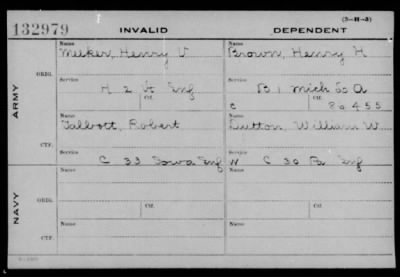 (3-H-3)
132979 INVALID DEPENDENT
Name Name
Melker, Henry V Brown, Henry H
ORIG.
Service Service
H 2 Vt Inf B 1 Mich L A
Ctf. Ctf.
C 80455
ARMY
Name Name
Talbott, Robert Dutton, William W
CTF.
Service Service
C 33 Iowa Inf W C 30 Pa Inf
Name Name
ORIG.
Ctf. Ctf.
NAVY
Name Name
CTF.